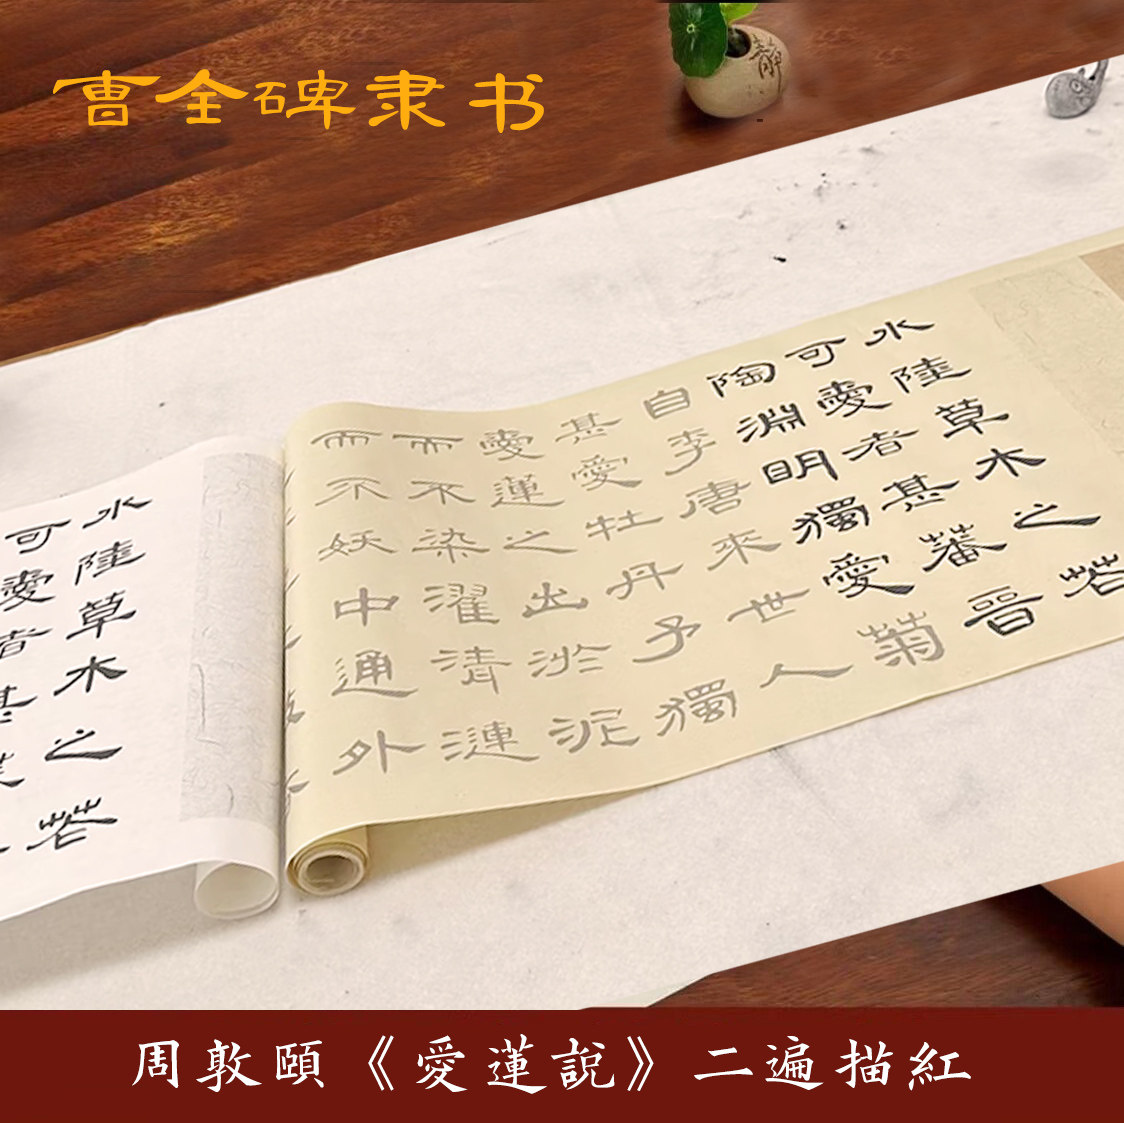 曹全碑隶书
靜
水陸草木之花
可愛者甚蕃晉
陶淵明獨愛菊
自李唐來世人
甚愛牡丹予獨
愛蓮之出淤泥
而不染濯清漣
而不妖中通外
水陸草木之花
可愛者甚
周敦頤《愛蓮說》二遍描紅